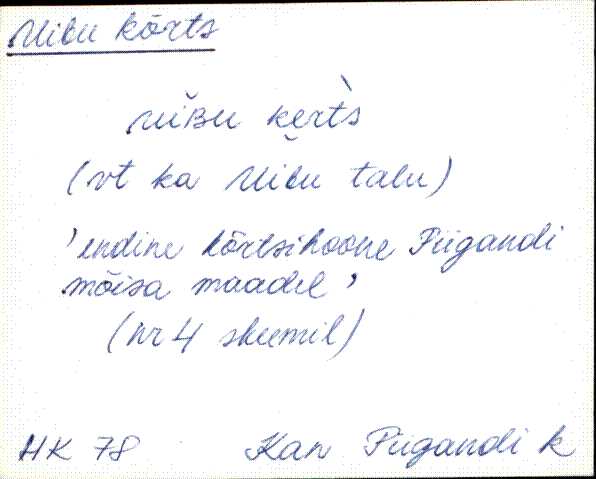 Uibu kõrts
uiʙu kɛrt̀s
(vt ka Uibu talu)
'endine kõrtsihoone Piigandi
mõisa maadel'
(nr 4 skeemil)
HK 78 Kan Piigandi k